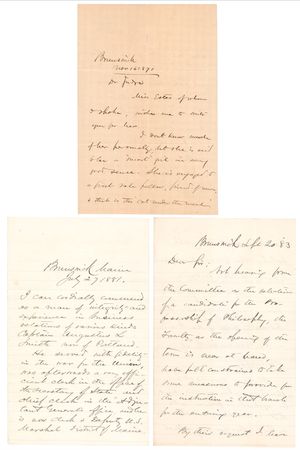 Brunswick
Nov. 16 1871
Dr Judge
Miss Estes of whom
I spoke, wishes me to write
upon for her.
I don't know much
of her personally, but she is said
to be a "smart" girl in every
good sense. She is engaged to
a first rate fellow, friend of mine,
Brunswick Maine
July 27 1881.
I can cordially commend
as a man of integrity and
experience in business
relations of various kinds
Captain Augustus L.
Smith now of Portland.
He served with fidelity
in the war for the Union,
was afterwards an
official clerk in the office of
the Secretary of State, and
chief clerk in the Adju-
tant General's office, which
is now clerk & Deputy U.S.
Marshal District of Maine.
Brunswick Sept 20 '83
Dear Sir:
Not hearing from
the Committee on the selection
of a candidate for the Pro-
fessorship of Philosophy, the
Faculty, as the opening of the
term is near at hand,
have felt constrained to take
some measures to provide for
the instruction in that branch
for the ensuing year.
By their request I have